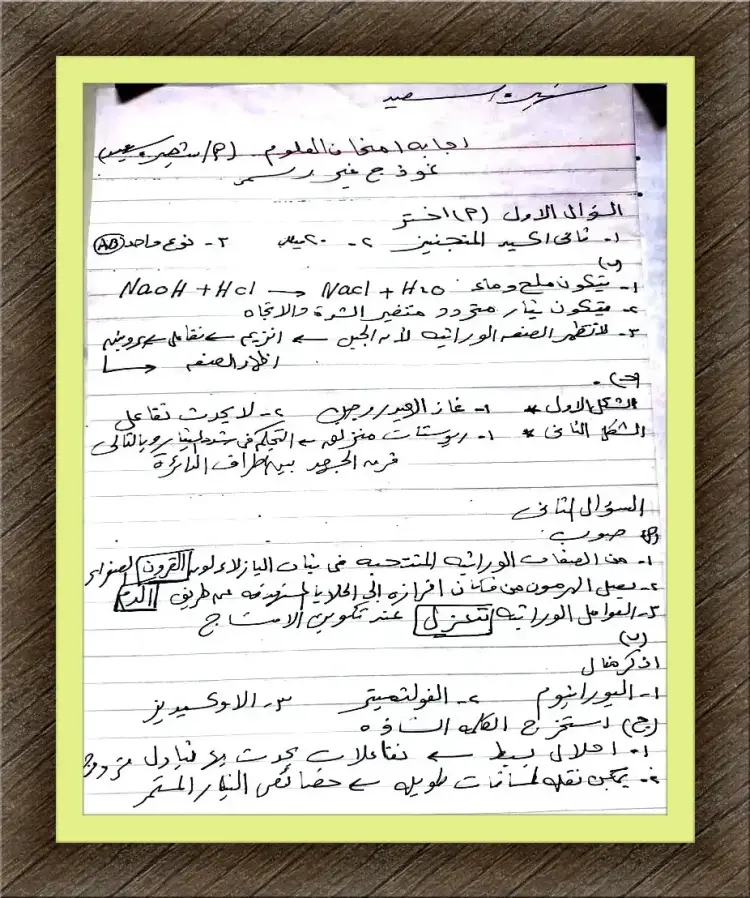 شهيرة السعيد
اجابة امتحان العلوم (P/شهيرة سعيد)
نموذج غير رسمى
السؤال الاول (P) اختر
١- ثانى اكسيد المنجنيز ٢- ٢٠ ميل ٣- نوع واحد (AB)
(ب)
١- يتكون ملح وماء NaOH + Hcl → Nacl + H2O
٢- يتكون تيار متردد متغير الشدة والاتجاه
٣- لا تظهر الصفه الوراثيه لأن الجين ← انزيم ← تفاعل ← بروتين
← اظهار الصفه
(ج)-
الشكل الاول * ١- غاز الهيدروجين ٢- لا يحدث تفاعل
الشكل الثانى * ١- ريوستات منزلقه ← التحكم فى شدة التيار وبالتالى
فرق الجهد بين اطراف الدائرة
السؤال الثانى
(P) صوب
١- من الصفات الوراثيه المتنحيه فى نبات البازلاء لون القرون الصفراء
٢- يصل الهرمون من مكان افرازه الي الخلايا المستهدفه عن طريق الدم
٣- العوامل الوراثيه تنعزل عند تكوين الامشاج
(ب)
اذكر مثال
١- اليورانيوم ٢- الفولتميتر ٣- الاوكسيديز
(ج) استخرج الكلمه الشاذه
١- احلال بسيط ← تفاعلات يحدث بها تبادل مزدوج
٢- يمكن نقله لمسافات طويله ← خصائص التيار المستمر